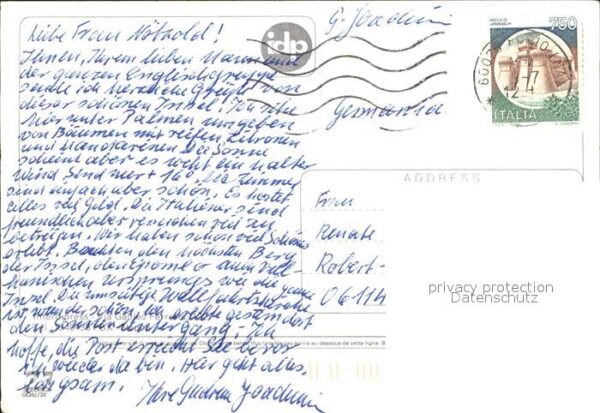 Liebe Frau Nötzold!
Ihnen, Ihrem lieben Mann und
der ganzen Englischgruppe
sende ich herzliche Grüße von
dieser schönen Insel! Ich sitze
hier unter Palmen umgeben
von Bäumen mit reifen Zitronen
und Mandarinen. Die Sonne
scheint aber es weht ein kalter
Wind. Sind nur + 16°. Die Zimmer
sind einfach aber schön. Es kostet
alles viel Geld. Die Italiener sind
freundlich aber versuchen viel zu
betrügen. Wir haben schon viel Schönes
erlebt. den höchsten Berg
der Insel, den Epomeo
vulkanischen Ursprungs wie die ganze
Insel. Die
ist wunderschön, wir erlebten gestern dort
den Sonnenuntergang. Ich
hoffe, die Post erreicht Sie bevor
ich wieder da bin. Hier geht alles
langsam. Ihre Gudrun Joachimi
G. Joachimi
idp
Germania
ROCCA DI
750
ITALIA
ADDRESS
Frau
Renate
Robert-
06114
privacy protection
Datenschutz